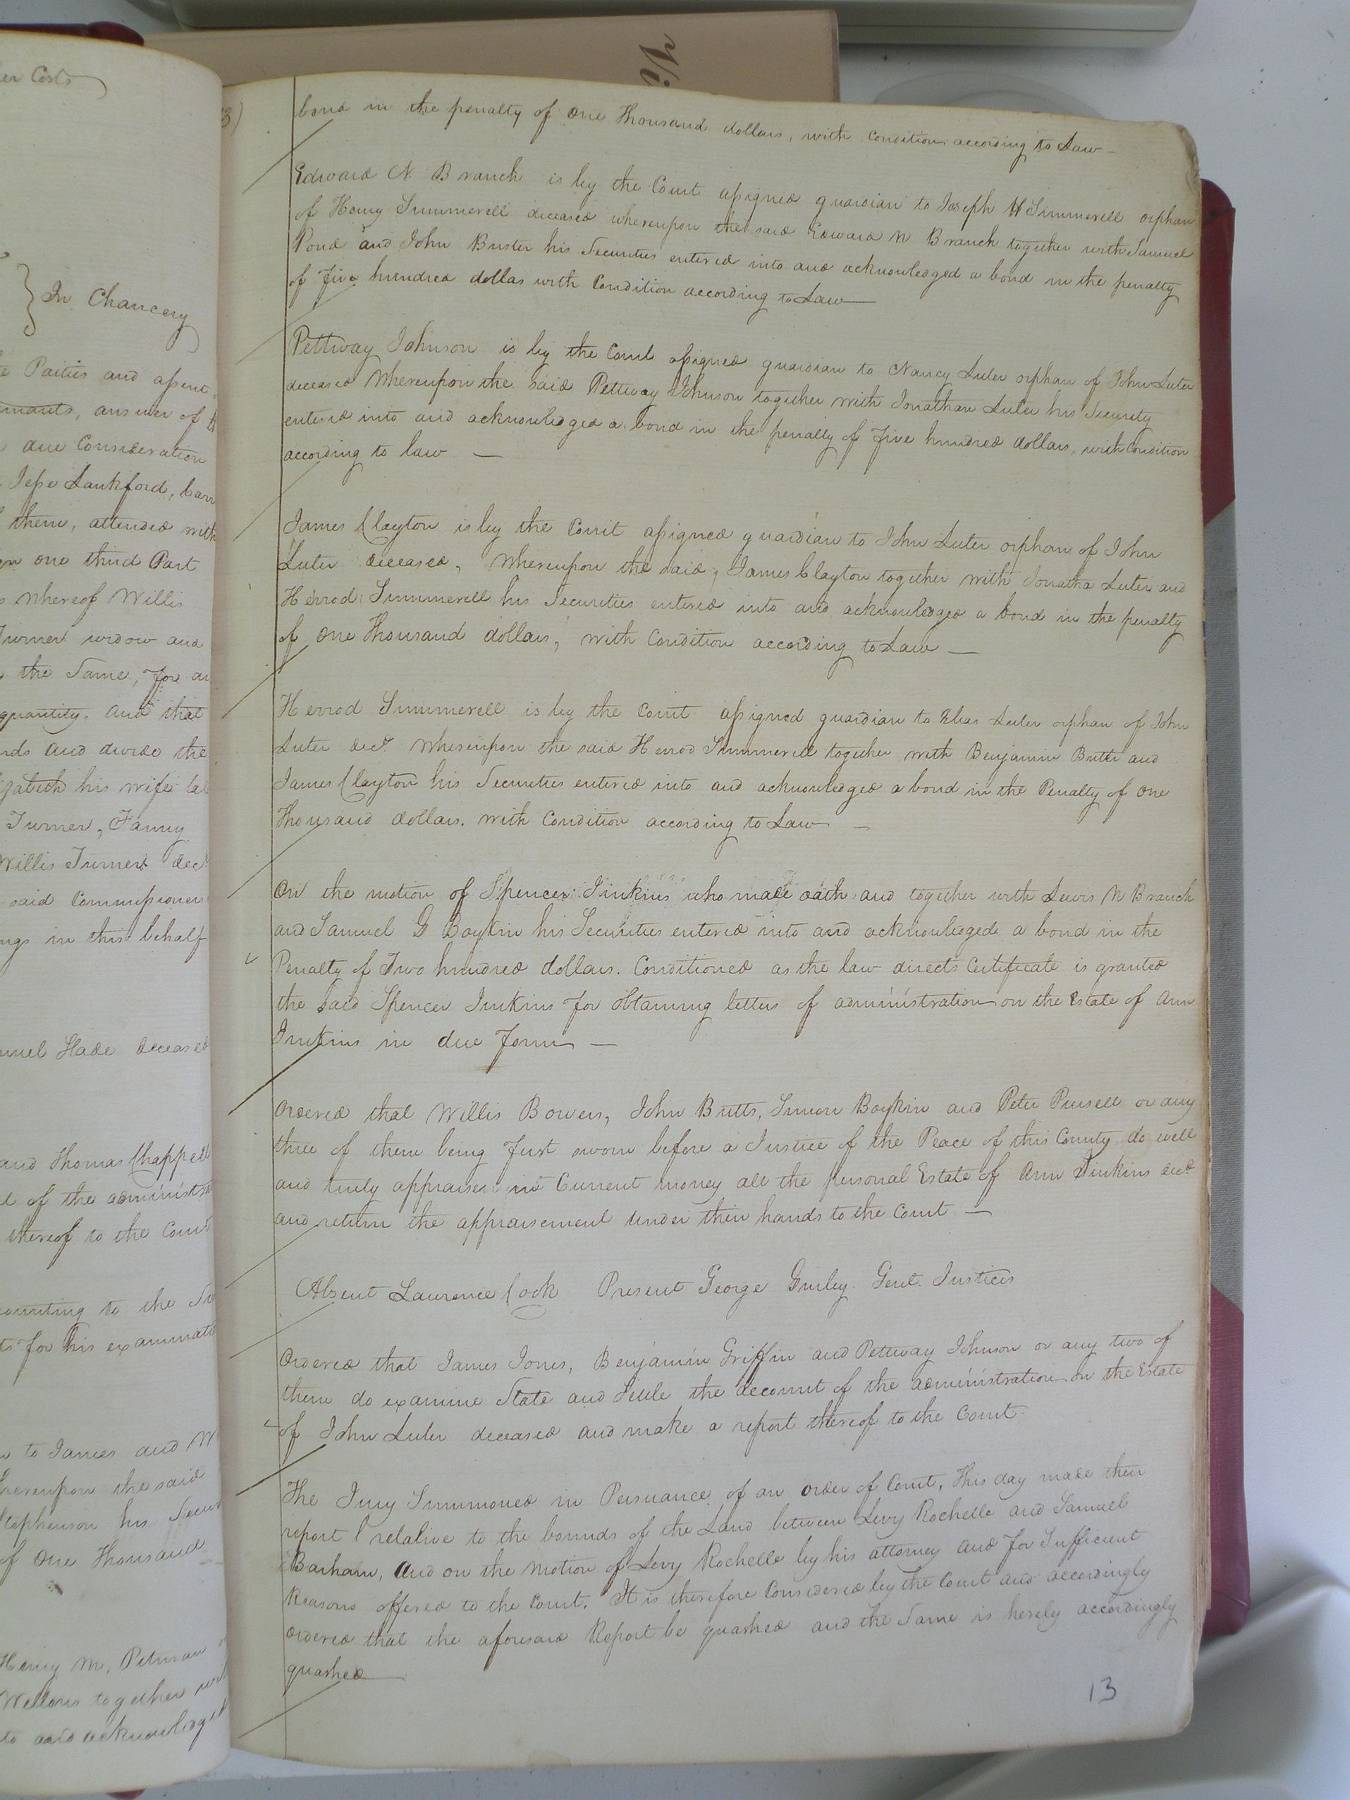 er Costs
In Chancery
e Parties and assent
mants, answer of th
due Consideration
Jesse Lankford, Carr
them, attended with
one third Part
whereof Willis
Turner widow and
the Same, for an
quantity. and that
nds and divide the
zabeth his wife la
Turner, Fanny
Willis Turner decd
said Commissioners
ngs in this behalf
muel Slade deceased
and Thomas Chappell
d of the administra
thereof to the Court
counting to the
ts for his examinati
to James and W
hereupon the said
Stephenson his Secur
of One Thousand
Henry M. Pitman
Wellons together wi
to and acknowledged
3)
bond in the penalty of One Thousand dollars, with Condition according to Law
Edward N Branch is by the Court assigned guardian to Joseph H Simmerell orphan
of Henry Summerell deceased whereupon the said Edward N Branch together with Samuel
Pond and John Buster his Securities entered into and acknowledged a bond in the penalty
of Five hundred dollas with Condition according to Law
Pettway Johnson is by the Court assigned guardian to Nancy Luter orphan of John Luter
deceased Whereupon the said Pettway Johnson together with Jonathan Luter his Security
entered into and acknowledged a bond in the penalty of Five hundred dollars, with Condition
according to law
James Clayton is by the Court assigned guardian to John Luter orphan of John
Luter deceased, Whereupon the said, James Clayton together with Jonatha Luter and
Herrod Simmerell his Securities entered into and acknowledged a bond in the penalty
of One Thousand dollars, with Condition according to Law
Herrod Simmerell is by the Court assigned guardian to Elias Luter orphan of John
Luter decd. Whereupon the said Herrod Simmerell together with Benjamin Butler and
James Clayton his Securities entered into and acknowledged a bond in the Penalty of One
Thousand dollars. with Condition according to Law
On the motion of Spencer Jinkins who made oath and together with Lewis N Branch
and Samuel G Boykin his Securities entered into and acknowledged a bond in the
Penalty of Two hundred dollars. Conditioned as the law directs Certificate is granted
the said Spencer Jinkins for obtaining letters of administration on the Estate of Ann
Jinkins in due Form
Ordered that Willis Bowers, John Britts, Simon Boykin and Peter Pursell or any
three of them being first sworn before a Justice of the Peace of this County do well
and truly appraise in Current money all the personal Estate of Ann Jinkins decd
and return the appraisement under their hands to the Court
Absent Lawrence Cook Present George Gurley Gent. Justices
Ordered that James Jones, Benjamin Griffin and Pettway Johnson or any two of
them do examine State and Settle the account of the administration on the Estate
of John Luter deceased and make a report thereof to the Court
The Jury Summoned in Persuance of an order of Court, This day made their
report relative to the bounds of the Land between Levy Rochelle and Samuel
Barham, And on the Motion of Levy Rochelle by his attorney and for Sufficient
Reasons offered to the Court. It is therefore Considered by the Court and accordingly
ordered that the aforesaid Report be quashed and the Same is hereby accordingly
quashed
13